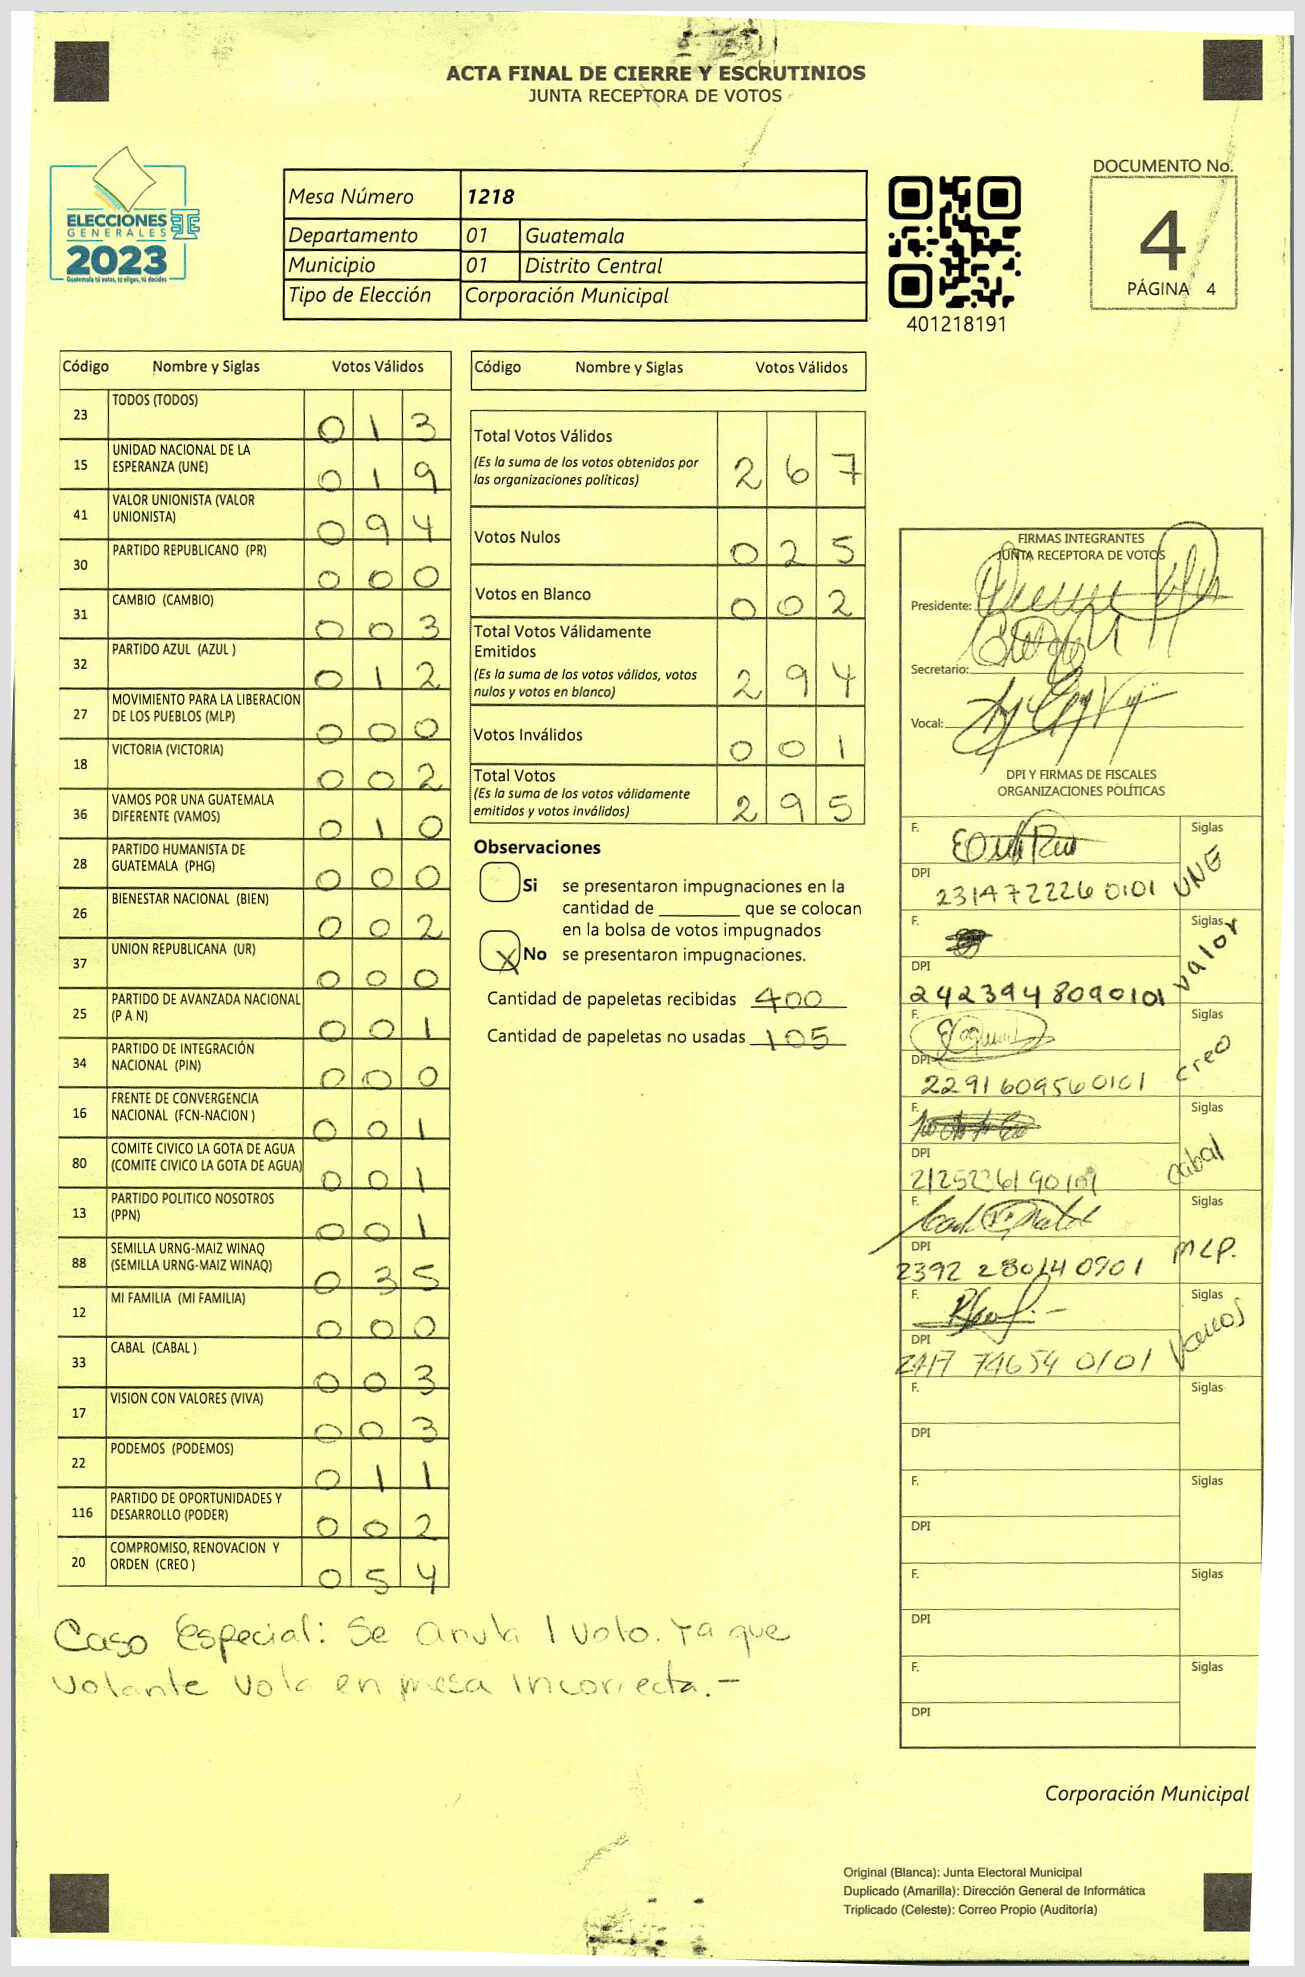 ACTA FINAL DE CIERRE Y ESCRUTINIOS
JUNTA RECEPTORA DE VOTOS
ELECCIONES
GENERALES
2023
Guatemala tú votas, tú eliges, tú decides
Mesa Número 1218
Departamento 01 Guatemala
Municipio 01 Distrito Central
Tipo de Elección Corporación Municipal
401218191
DOCUMENTO No.
4
PÁGINA 4
Código Nombre y Siglas Votos Válidos
23 TODOS (TODOS) 0 1 3
15 UNIDAD NACIONAL DE LA ESPERANZA (UNE) 0 1 9
41 VALOR UNIONISTA (VALOR UNIONISTA) 0 9 4
30 PARTIDO REPUBLICANO (PR) 0 0 0
31 CAMBIO (CAMBIO) 0 0 3
32 PARTIDO AZUL (AZUL ) 0 1 2
27 MOVIMIENTO PARA LA LIBERACION DE LOS PUEBLOS (MLP) 0 0 0
18 VICTORIA (VICTORIA) 0 0 2
36 VAMOS POR UNA GUATEMALA DIFERENTE (VAMOS) 0 1 0
28 PARTIDO HUMANISTA DE GUATEMALA (PHG) 0 0 0
26 BIENESTAR NACIONAL (BIEN) 0 0 2
37 UNION REPUBLICANA (UR) 0 0 0
25 PARTIDO DE AVANZADA NACIONAL (P A N) 0 0 1
34 PARTIDO DE INTEGRACIÓN NACIONAL (PIN) 0 0 0
16 FRENTE DE CONVERGENCIA NACIONAL (FCN-NACION ) 0 0 1
80 COMITE CIVICO LA GOTA DE AGUA (COMITE CIVICO LA GOTA DE AGUA) 0 0 1
13 PARTIDO POLITICO NOSOTROS (PPN) 0 0 1
88 SEMILLA URNG-MAIZ WINAQ (SEMILLA URNG-MAIZ WINAQ) 0 3 5
12 MI FAMILIA (MI FAMILIA) 0 0 0
33 CABAL (CABAL ) 0 0 3
17 VISION CON VALORES (VIVA) 0 0 3
22 PODEMOS (PODEMOS) 0 1 1
116 PARTIDO DE OPORTUNIDADES Y DESARROLLO (PODER) 0 0 2
20 COMPROMISO, RENOVACION Y ORDEN (CREO ) 0 5 4
Código Nombre y Siglas Votos Válidos
Total Votos Válidos 2 6 7
(Es la suma de los votos obtenidos por
las organizaciones políticas)
Votos Nulos 0 2 5
Votos en Blanco 0 0 2
Total Votos Válidamente
Emitidos 2 9 4
(Es la suma de los votos válidos, votos
nulos y votos en blanco)
Votos Inválidos 0 0 1
Total Votos 2 9 5
(Es la suma de los votos válidamente
emitidos y votos inválidos)
Observaciones
Si se presentaron impugnaciones en la
cantidad de ________ que se colocan
en la bolsa de votos impugnados
X No se presentaron impugnaciones.
Cantidad de papeletas recibidas 400
Cantidad de papeletas no usadas 105
FIRMAS INTEGRANTES
JUNTA RECEPTORA DE VOTOS
Presidente:
Secretario:
Vocal:
DPI Y FIRMAS DE FISCALES
ORGANIZACIONES POLÍTICAS
F. Siglas
DPI 2314722260101 UNE
F. Siglas
DPI 2423948090101 valor
F. Siglas
DPI 2291609560101 creo
F. Siglas
DPI cabal
F. Siglas
DPI 2392 28014 0901 MLP.
F. Siglas
DPI 2417 74654 0101 Vamos
F. Siglas
DPI
F. Siglas
DPI
F. Siglas
DPI
F. Siglas
DPI
Caso Especial: Se anula 1 voto. Ya que
votante voto en mesa incorrecta.-
Corporación Municipal
Original (Blanca): Junta Electoral Municipal
Duplicado (Amarilla): Dirección General de Informática
Triplicado (Celeste): Correo Propio (Auditoría)